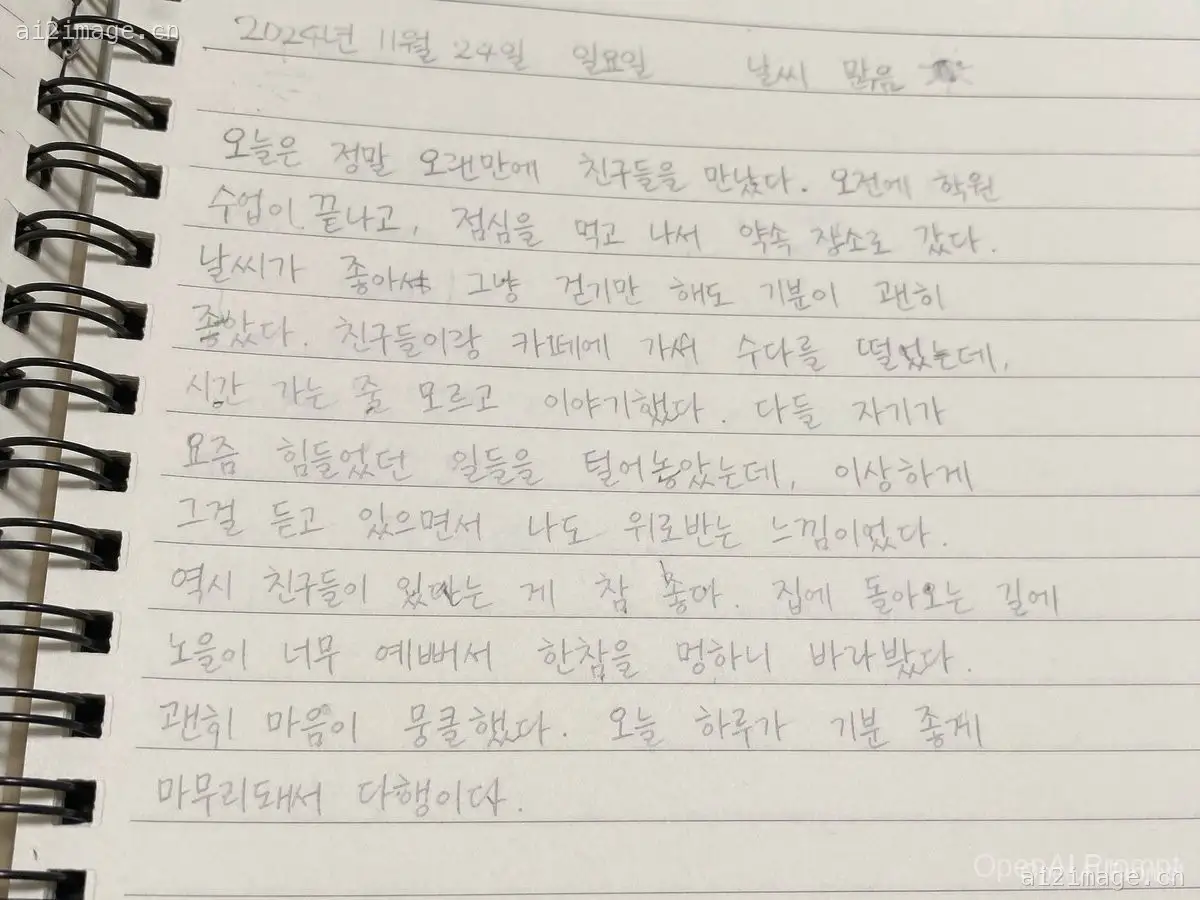 ai2image.cn
2024년 11월 24일 일요일 날씨 맑음
오늘은 정말 오랜만에 친구들을 만났다. 오전에 학원
수업이 끝나고, 점심을 먹고 나서 약속 장소로 갔다.
날씨가 좋아서 그냥 걷기만 해도 기분이 괜히
좋았다. 친구들이랑 카페에 가서 수다를 떨었는데,
시간 가는 줄 모르고 이야기했다. 다들 자기가
요즘 힘들었던 일들을 털어놓았는데, 이상하게
그걸 듣고 있으면서 나도 위로받는 느낌이었다.
역시 친구들이 있다는 게 참 좋다. 집에 돌아오는 길에
노을이 너무 예뻐서 한참을 멍하니 바라봤다.
괜히 마음이 뭉클했다. 오늘 하루가 기분 좋게
마무리돼서 다행이다.
OpenAI Prompt
ai2image.cn